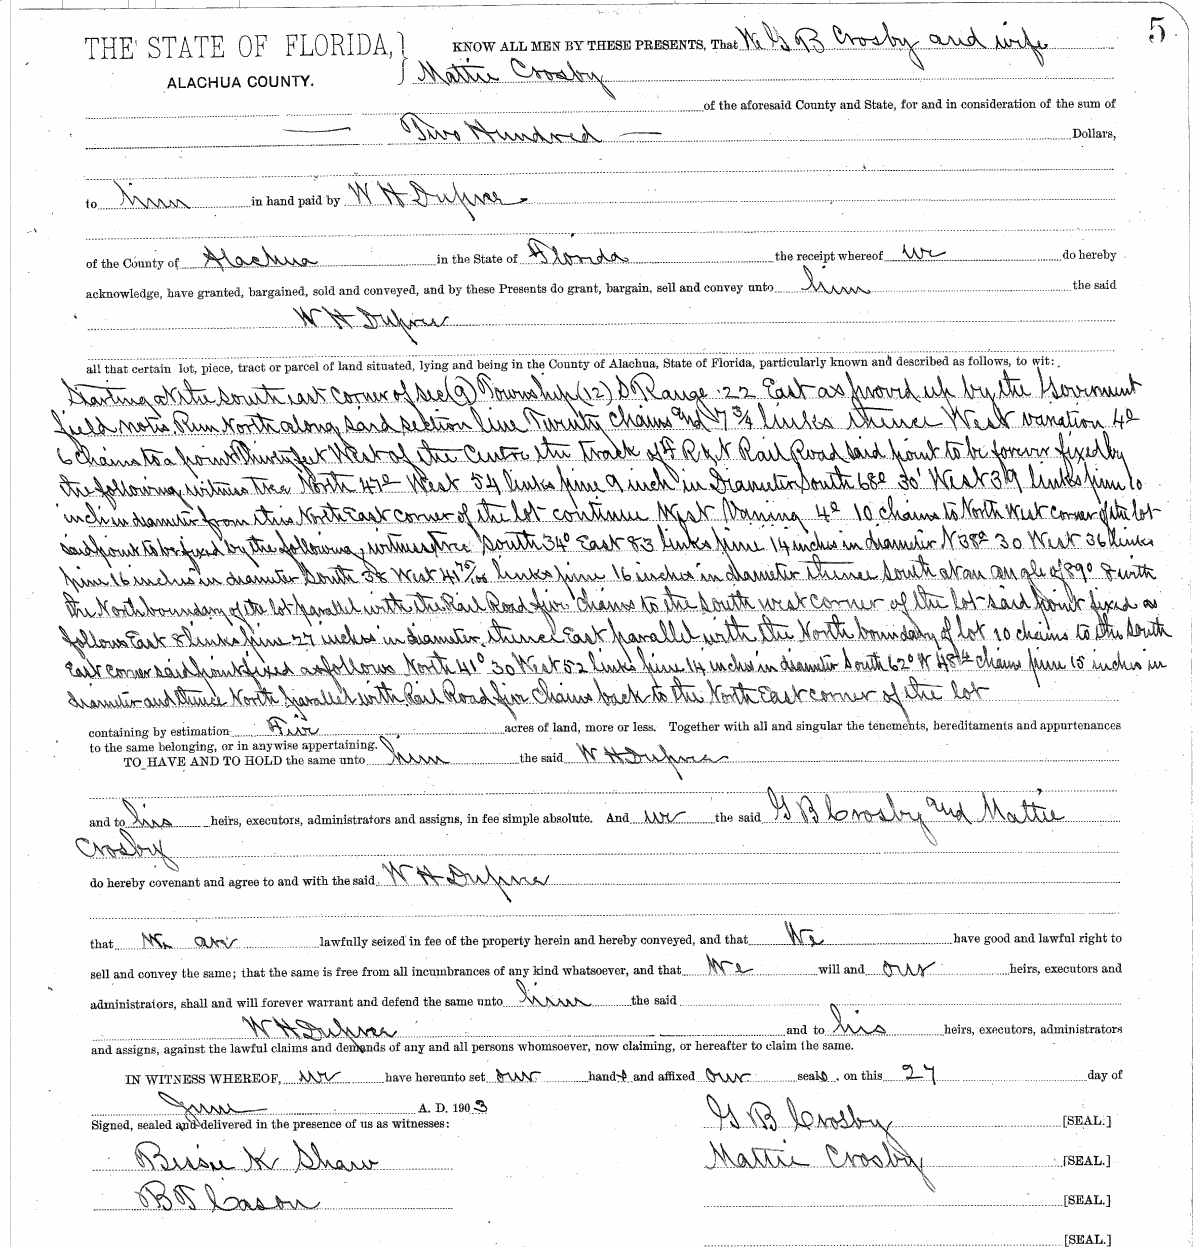 5
THE STATE OF FLORIDA,} KNOW ALL MEN BY THESE PRESENTS, That We G B Crosby and wife
ALACHUA COUNTY. Mattie Crosby
of the aforesaid County and State, for and in consideration of the sum of
Two Hundred Dollars,
to him in hand paid by W H Dupree
of the County of Alachua in the State of Florida the receipt whereof we do hereby
acknowledge, have granted, bargained, sold and conveyed, and by these Presents do grant, bargain, sell and convey unto him the said
W H Dupree
all that certain lot, piece, tract or parcel of land situated, lying and being in the County of Alachua, State of Florida, particularly known and described as follows, to wit:
Starting at the South east Corner of Sec (9) Township (12) S Range 22 East as proved up by the Government
field notes. Run North along said section line Twenty Chains and 7 3/4 links thence West variation 4º
6 Chains to a point Thirty feet West of the Centre the track of Rail Road said point to be forever fixed by
the following witness tree North 47º West 54 links pine 9 inch in Diameter South 68º 30' West 39 links pine 10
inch in diameter from this North East corner of the lot continue West Varying 4º 10 chains to North West corner of the lot
said point to be fixed by the following witness tree South 34º East 83 links pine 14 inches in diameter N 38º 30 West 36 links
pine 16 inches in diameter South 38 West 41 75/100 links pine 16 inches in diameter thence South at an angle of 89º with
the North boundary of the lot parallel with the Rail Road five chains to the South west corner of the lot said point fixed as
follows East 8 links pine 27 inches in diameter, thence East parallel with the North boundary of lot 10 chains to the South
East corner said point fixed as follows North 41º 30 West 52 links pine 14 inches in diameter South 62º W chains pine 15 inches in
diameter and thence North parallel with Rail Road five Chains back to the North East corner of the lot
containing by estimation Five acres of land, more or less. Together with all and singular the tenements, hereditaments and appurtenances
to the same belonging, or in anywise appertaining.
TO HAVE AND TO HOLD the same unto him the said W H Dupree
and to his heirs, executors, administrators and assigns, in fee simple absolute. And we the said G B Crosby and Mattie
Crosby
do hereby covenant and agree to and with the said W H Dupree
that We are lawfully seized in fee of the property herein and hereby conveyed, and that We have good and lawful right to
sell and convey the same; that the same is free from all incumbrances of any kind whatsoever, and that We will and our heirs, executors and
administrators, shall and will forever warrant and defend the same unto him the said
W H Dupree and to his heirs, executors, administrators
and assigns, against the lawful claims and demands of any and all persons whomsoever, now claiming, or hereafter to claim the same.
IN WITNESS WHEREOF, we have hereunto set our hands and affixed our seals, on this 27 day of
June A. D. 1903
Signed, sealed and delivered in the presence of us as witnesses: G B Crosby [SEAL.]
Bessie K Shaw Mattie Crosby [SEAL.]
B T Cason [SEAL.]
[SEAL.]